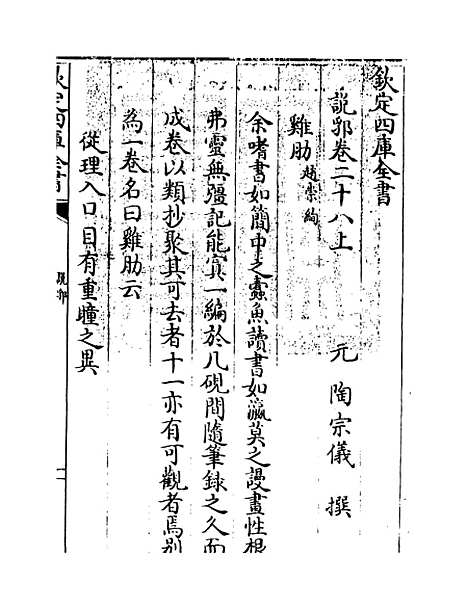 欽定四庫全書
說郛卷二十八上　元　陶宗儀　撰
雞肋 趙崇絢
余嗜書如簡中之蠹魚讀書如瀛莫之謾畫性根
弗靈無彊記能寘一編於几硯間隨筆録之久而
成卷以類抄聚其可去者十一亦有可觀者焉别
為一卷名曰雞肋云
從理入口目有重瞳之異
欽定四庫全書
說郛